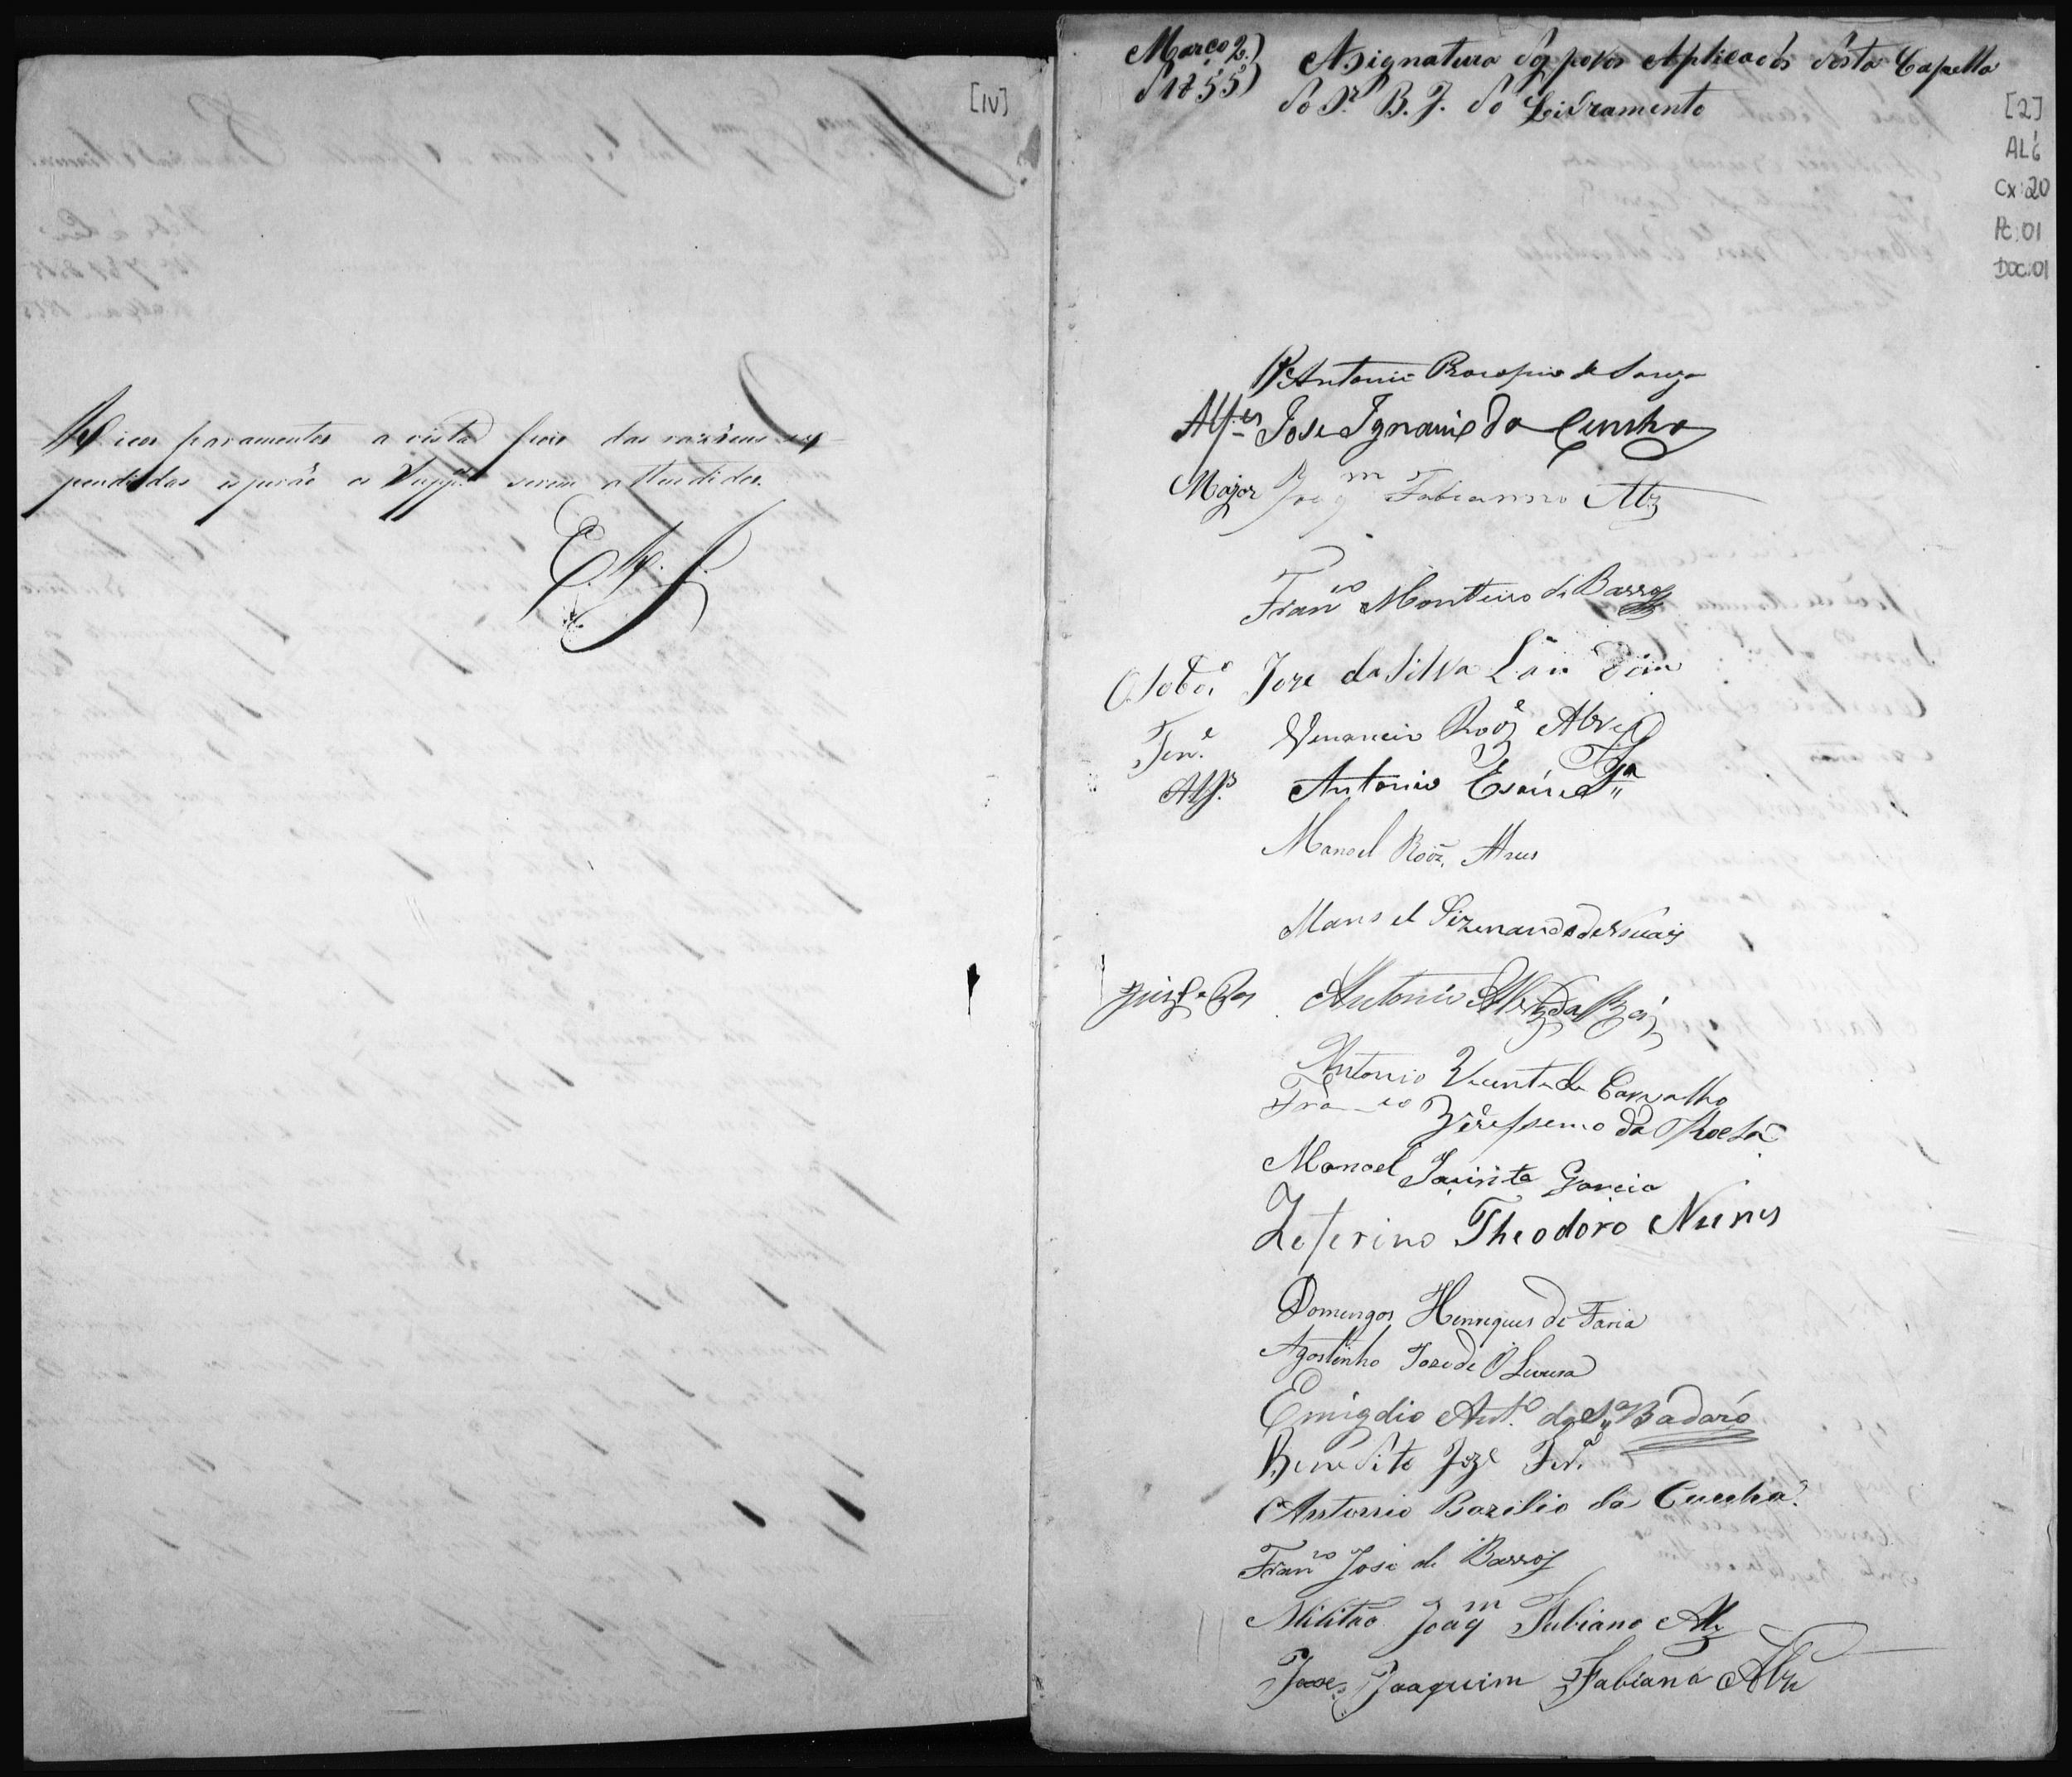 [1V]
ricos paramentos a vista pois das rasões ex-
pendidas esperão os Supp.es serem attendidos.
E. R. M.
Março 2)
d 1855)
Asignatura dos povos Aplicados desta Capella
do Sr. B. J. do Livramento
[2]
AL6
Cx: 20
Pc: 01
Doc: 01
Pe Antonio Procopio de Souza
Alf.es Jose Ignacio da Cunha
Major Joaqm Fabianno Alz
Franco Montteiro de Barros
Joze da Silva
Ten.e Venancio Roiz Alves
Alf.s Antonio
Manoel Roiz. Alves
Manoel Sizenando de Novais
Juis de Pas Antonio Alz da
Antonio Vicente de Carvalho
Franco da Rocha
Manoel Jacinto Garcia
Zeferino Theodoro Nunes
Domingos Henriques de Faria
Agostinho Jose de Oliveira
Emigdio Ant.o da Sa Badaró
Benedito Joze Fer.a
Antonio Bazilio da Cunha
Franco José de Barros
Militão Joaqm Fabiano Alz
Jose Joaquim Fabiano Alz